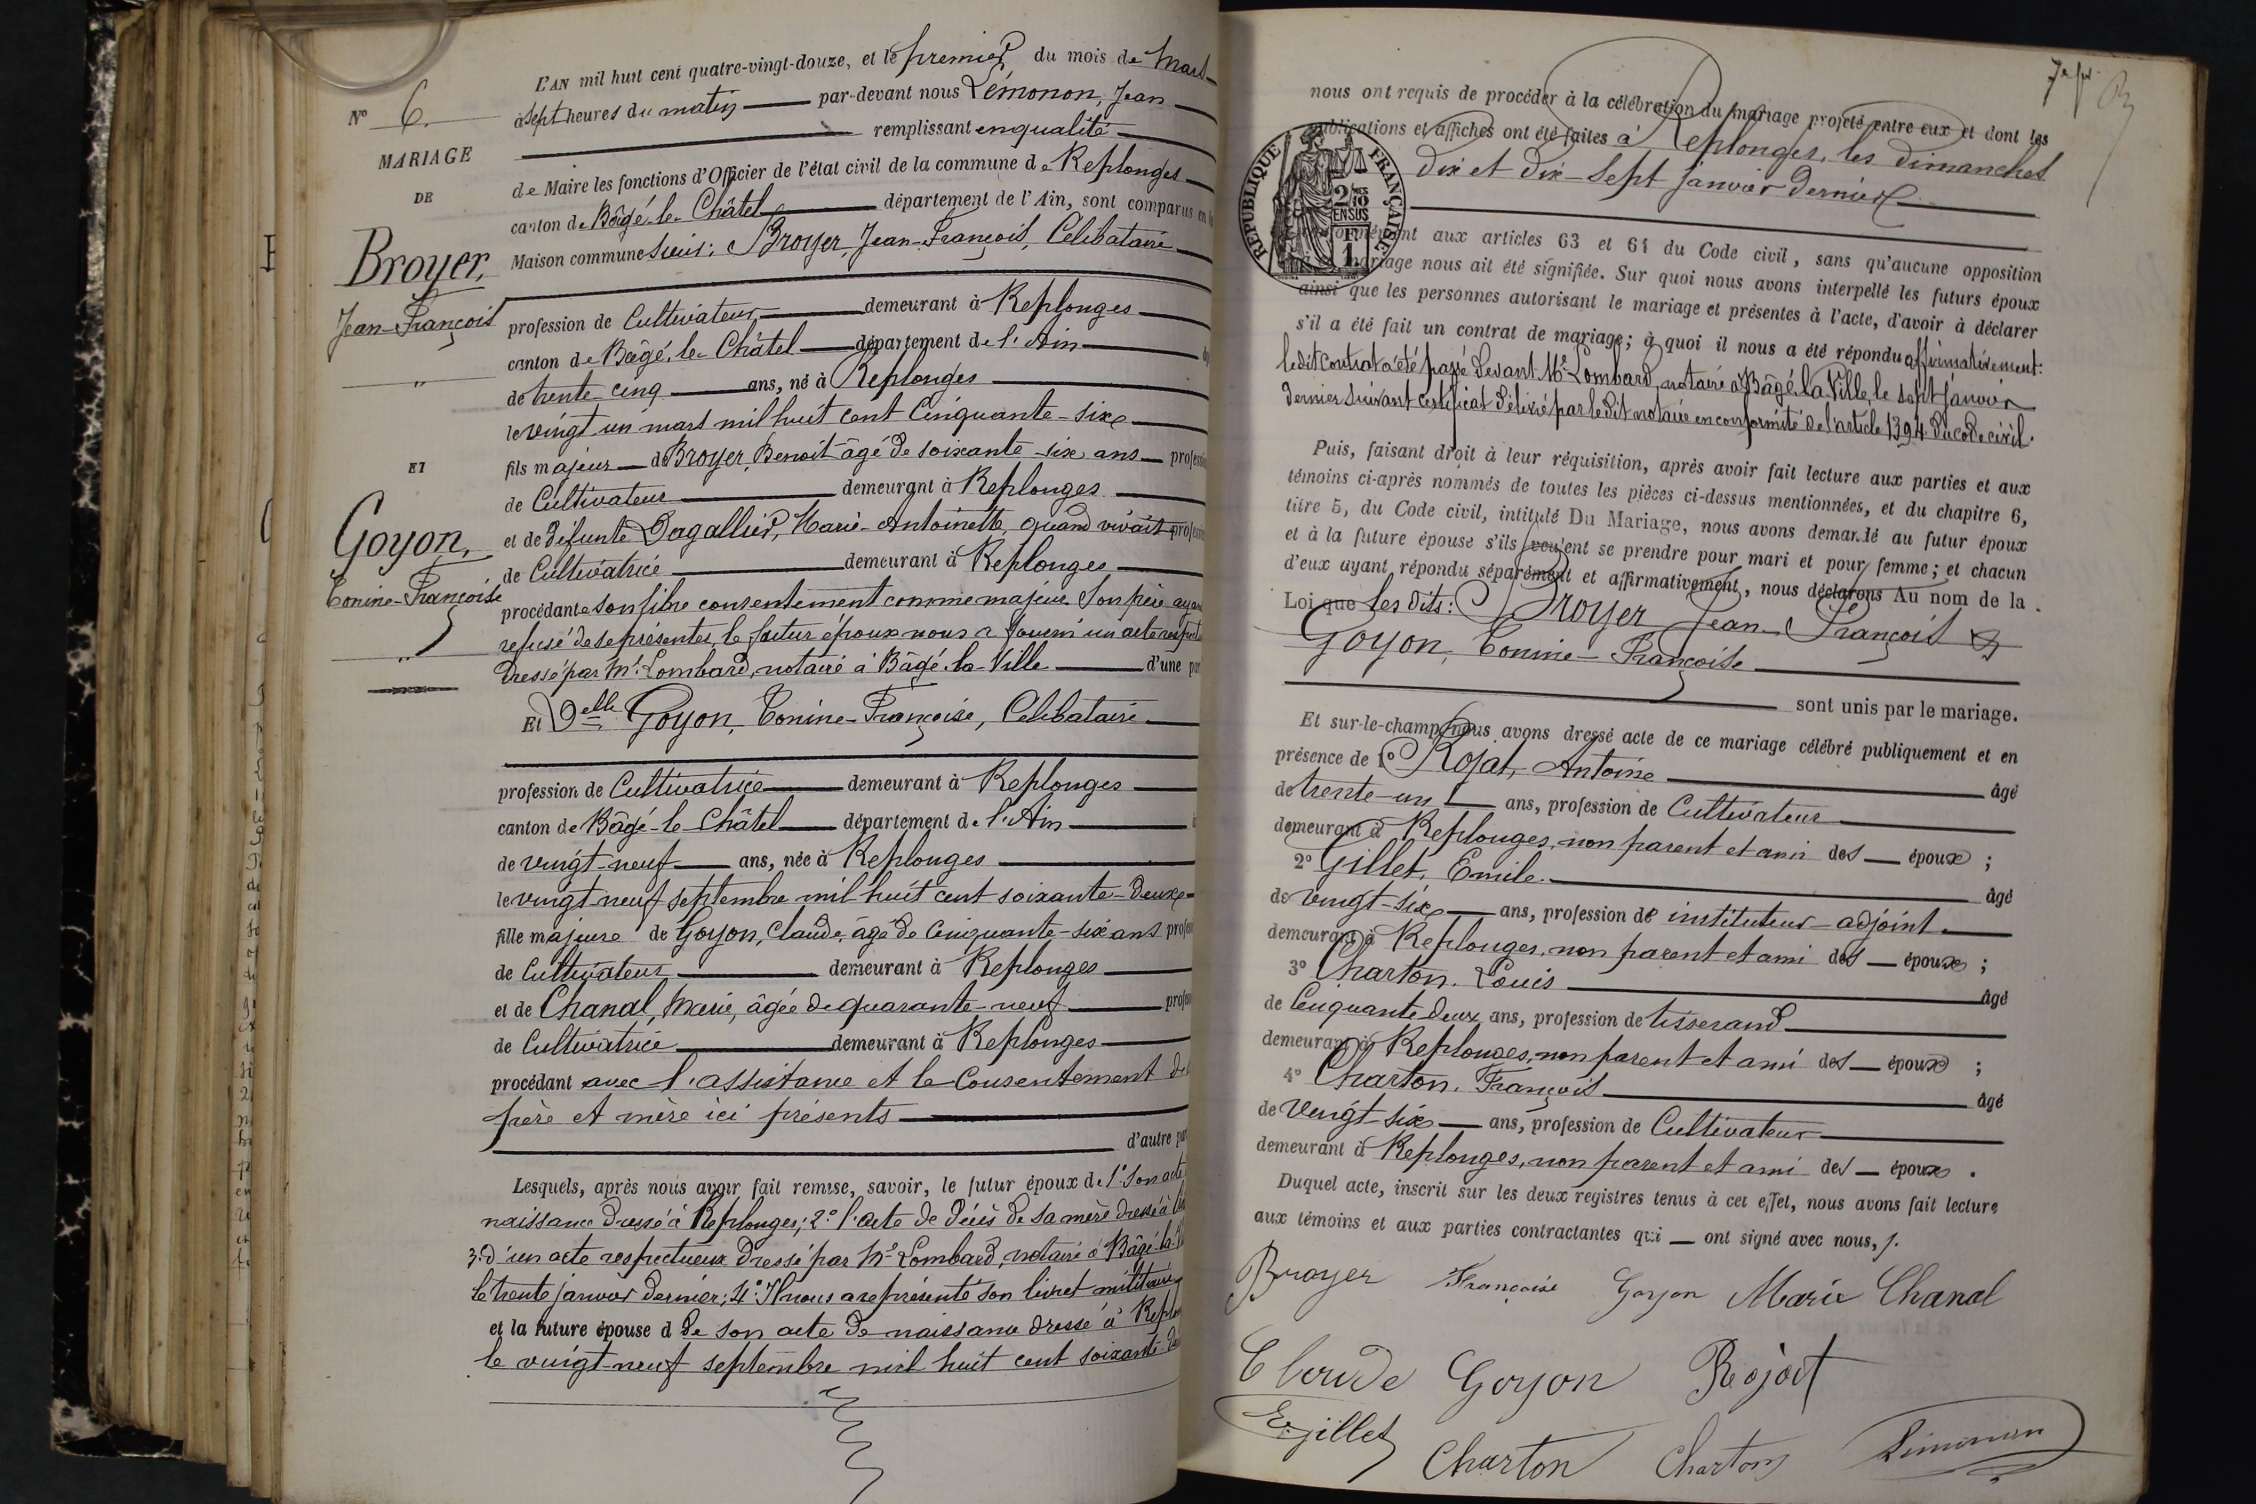 N° 6.
MARIAGE
DE
Broyer,
Jean-François
"
ET
Goyon,
Tonine-Françoise
"
L'AN mil huit cent quatre-vingt-douze, et le premier du mois de Mars
à sept heures du matin par-devant nous Lémonon, Jean
remplissant en qualité
de Maire les fonctions d'Officier de l'état civil de la commune de Replonges
canton de Bâgé-le-Châtel département de l'Ain, sont comparus en la
Maison commune sieur: Broyer, Jean-François, Célibataire
profession de Cultivateur demeurant à Replonges
canton de Bâgé-le-Châtel département de l'Ain
de trente-cinq ans, né à Replonges
le vingt un mars mil huit cent Cinquante-six
fils majeur de Broyer, Benoit âgé de soixante-six ans
de Cultivateur demeurant à Replonges
et de défunte Dagallier, Marie-Antoinette quand vivait
de Cultivatrice demeurant à Replonges
procédant de son libre consentement comme majeur. Son père ayant
refusé de se présenter, le futur époux nous a fourni un acte
dressé par Me Lombard, notaire à Bâgé-la-Ville d'une
Et Delle Goyon, Tonine-Françoise, Célibataire
profession de Cultivatrice demeurant à Replonges
canton de Bâgé-le-Châtel département de l'Ain
de vingt-neuf ans, née à Replonges
le vingt-neuf septembre mil huit cent soixante-deux
fille majeure de Goyon, Claude, âgé de Cinquante-six ans
de Cultivateur demeurant à Replonges
et de Chanal, Marie, âgée de quarante-neuf
de Cultivatrice demeurant à Replonges
procédant avec l'assistance et le Consentement de
père et mère ici présents
d'autre
Lesquels, après nous avoir fait remise, savoir, le futur époux de 1° Son acte
naissance dressé à Replonges; 2° l'acte de décès de sa mère dressé à
3° d'un acte respectueux dressé par Me Lombard, notaire à Bâgé-la-
le trente janvier dernier; 4° Il nous a représenté son livret militaire
et la future épouse d de son acte de naissance dressé à
le vingt-neuf septembre mil huit cent soixante-
nous ont requis de procéder à la célébration du mariage projeté entre eux et dont les
publications et affiches ont été faites à Replonges, les dimanches
dix et dix-sept janvier dernier
RÉPUBLIQUE FRANÇAISE
2/10 EN SUS
1 F
conformément aux articles 63 et 64 du Code civil, sans qu'aucune opposition
mariage nous ait été signifiée. Sur quoi nous avons interpellé les futurs époux
ainsi que les personnes autorisant le mariage et présentes à l'acte, d'avoir à déclarer
s'il a été fait un contrat de mariage; à quoi il nous a été répondu affirmativement:
le dit Contrat a été passé devant Me Lombard, notaire à Bâgé-la-Ville, le sept janvier
dernier suivant certificat délivré par le dit notaire en conformité de l'article 1394 du code civil.
Puis, faisant droit à leur réquisition, après avoir fait lecture aux parties et aux
témoins ci-après nommés de toutes les pièces ci-dessus mentionnées, et du chapitre 6,
titre 5, du Code civil, intitulé Du Mariage, nous avons demandé au futur époux
et à la future épouse s'ils veulent se prendre pour mari et pour femme; et chacun
d'eux ayant répondu séparément et affirmativement, nous déclarons Au nom de la
Loi que les dits: Broyer Jean-François et
Goyon, Tonine-Françoise
sont unis par le mariage.
Et sur-le-champ nous avons dressé acte de ce mariage célébré publiquement et en
présence de 1° Rojat, Antoine âgé
de trente-un ans, profession de Cultivateur
demeurant à Replonges, non parent et ami des époux ;
2° Gillet, Emile. âgé
de vingt-six ans, profession de instituteur-adjoint.
demeurant à Replonges, non parent et ami des époux ;
3° Charton, Louis âgé
de Cinquante deux ans, profession de tisserand
demeurant à Replonges, non parent et ami des époux ;
4° Charton, François âgé
de vingt-six ans, profession de Cultivateur
demeurant à Replonges, non parent et ami des époux .
Duquel acte, inscrit sur les deux registres tenus à cet effet, nous avons fait lecture
aux témoins et aux parties contractantes qui ont signé avec nous,
Broyer Françoise Goyon Marie Chanal
Cloude Goyon Rojat
E. Gillet Charton Charton Lémonon